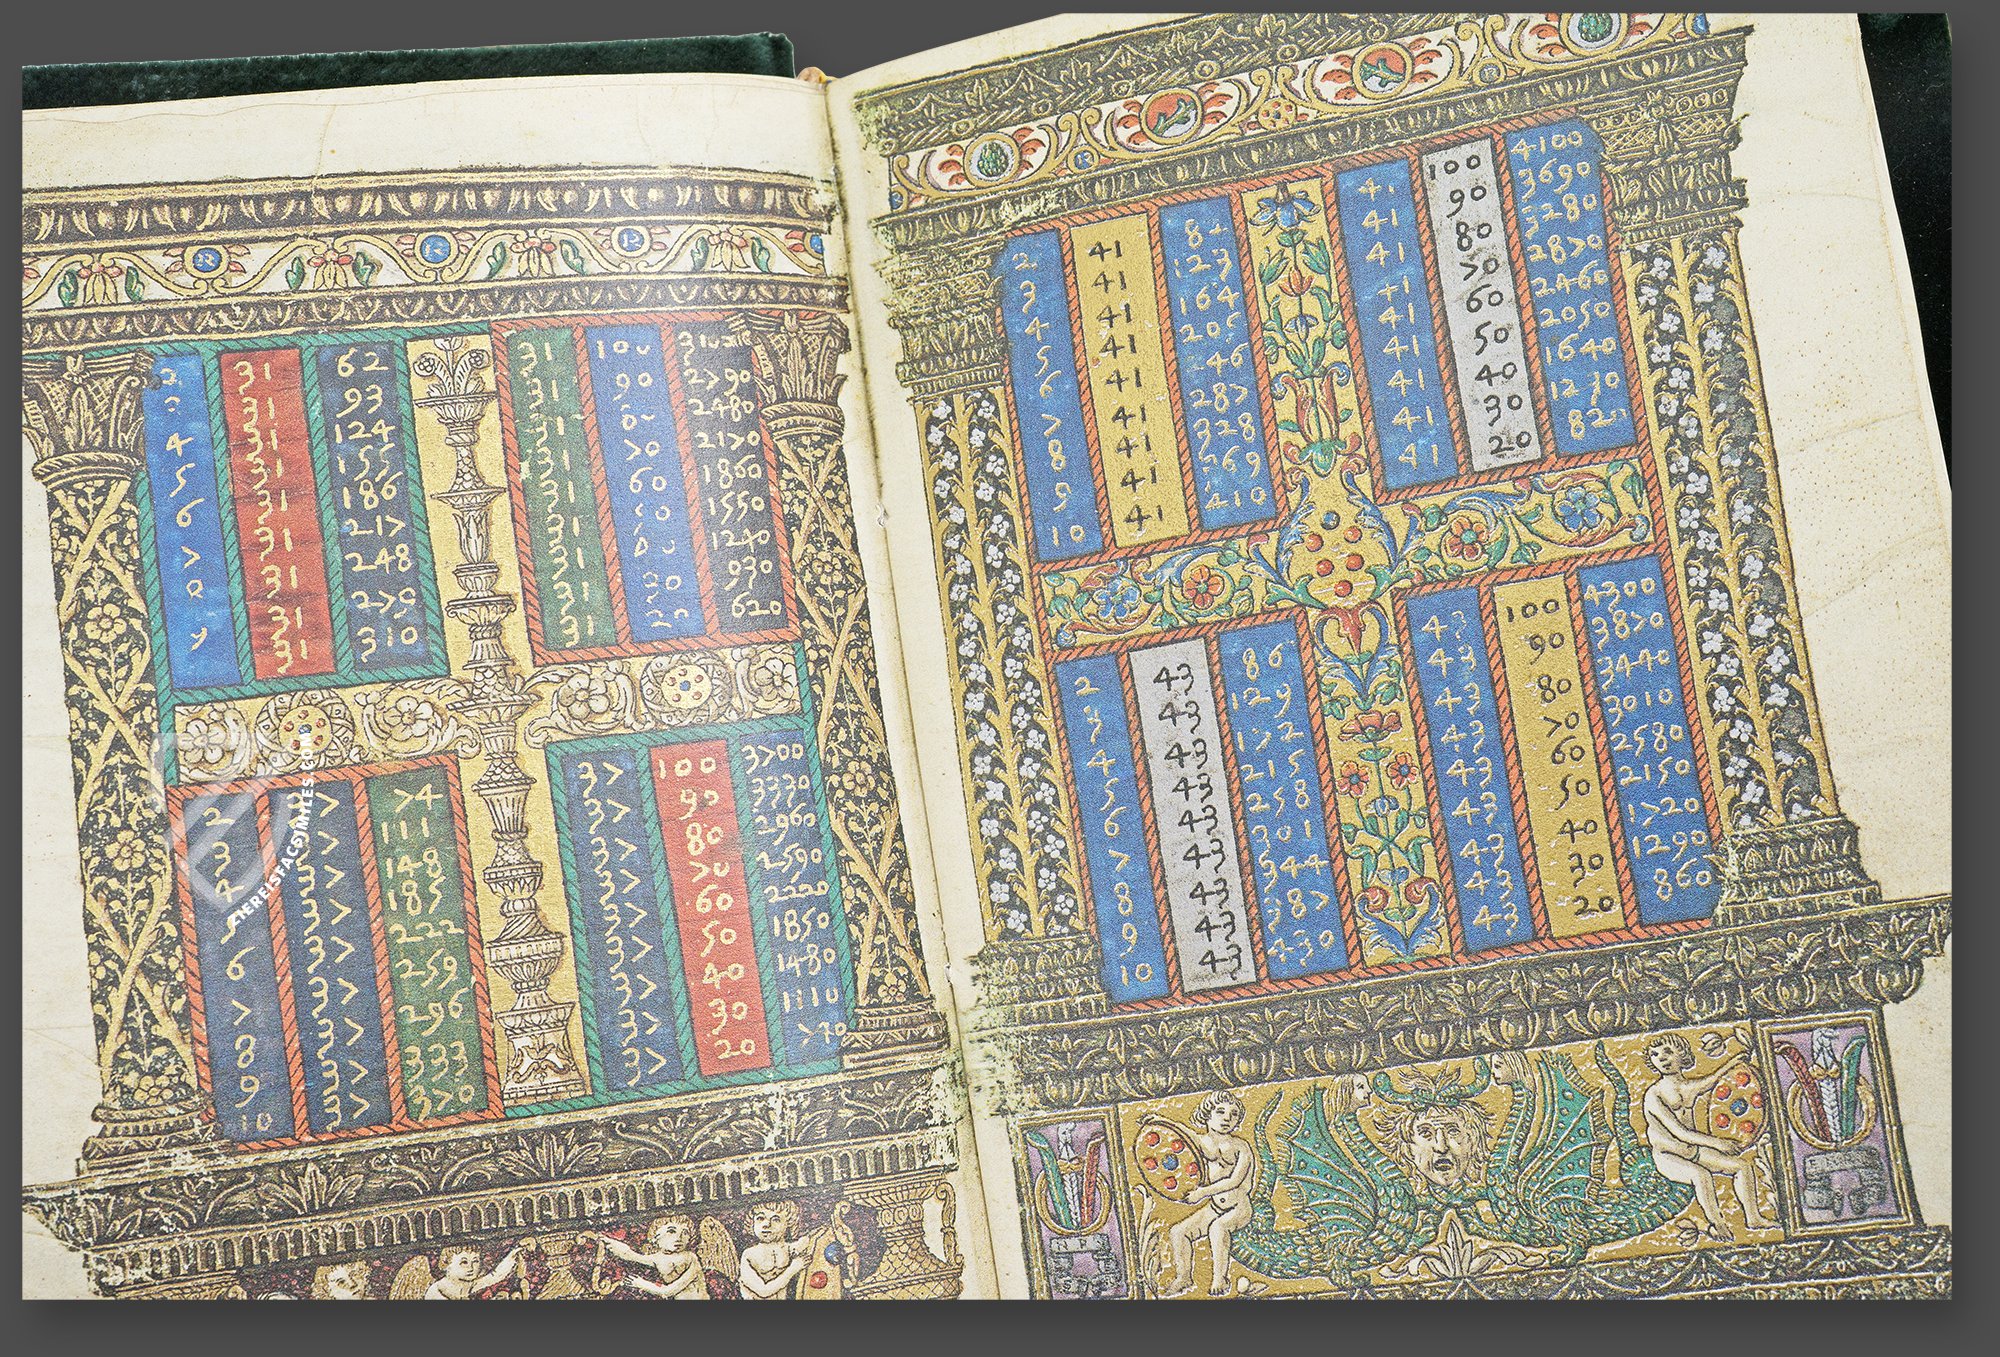 2 31 62
3 31 93
4 31 124
5 31 155
6 31 186
7 31 217
8 31 248
31 279
31 310
31 100 3100
31 90 2790
31 80 2480
31 70 2170
31 60 1860
31 50 1550
31 40 1240
31 30 930
31 20 620
2 37 74
3 37 111
4 37 148
5 37 185
6 37 222
7 37 259
8 37 296
9 37 333
10 37 370
37 100 3700
37 90 3330
37 80 2960
37 70 2590
37 60 2220
37 50 1850
37 40 1480
37 30 1110
37 20 740
2 41 82
3 41 123
4 41 164
5 41 205
6 41 246
7 41 287
8 41 328
9 41 369
10 41 410
41 100 4100
41 90 3690
41 80 3280
41 70 2870
41 60 2460
41 50 2050
41 40 1640
41 30 1230
41 20 820
2 43 86
3 43 129
4 43 172
5 43 215
6 43 258
7 43 301
8 43 344
9 43 387
10 43 430
43 100 4300
43 90 3870
43 80 3440
43 70 3010
43 60 2580
43 50 2150
43 40 1720
43 30 1290
43 20 860